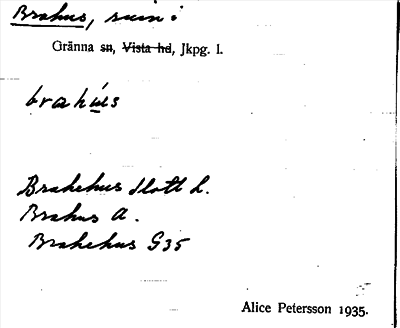 Brahus, ruin i
Gränna sn, Vista hd, Jkpg. l.
brahús
Brahehus slott L.
Brahus A.
Brahehus G35
Alice Petersson 1935.